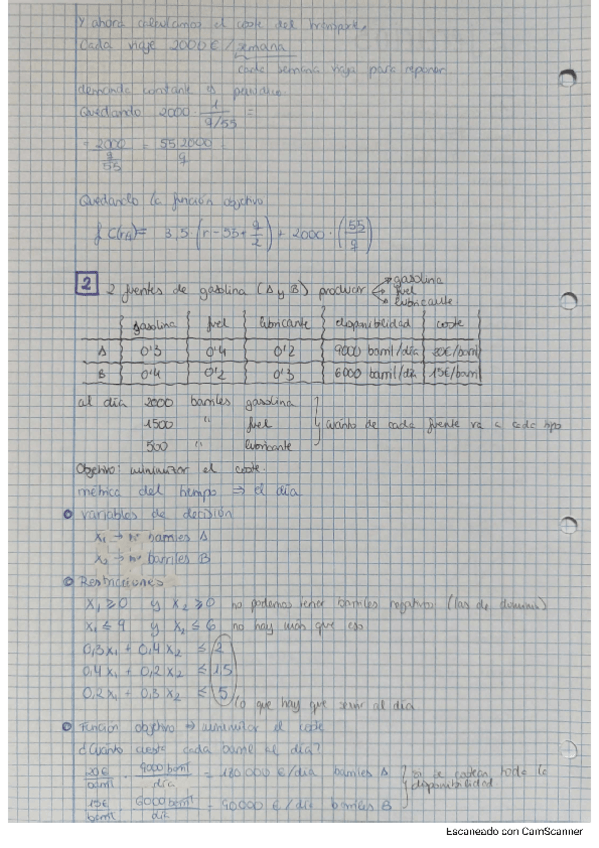 Y ahora calculamos el coste del transporte,
Cada viaje 2000€/semana
cada semana viaja para reponer
demanda constante
Quedando 2000 · 1/(q/55) =
= 2000/(q/55) = 55 2000/q
Quedando la función objetivo
3,5 · (r - 55 + q/2) + 2000 · (55/q)
2 2 fuentes de gasolina (A y B) producir gasolina
fuel
lubricante
gasolina fuel lubricante disponibilidad coste
A 0'3 0'4 0'2 9000 barril/día 20€/barril
B 0'4 0'2 0'3 6000 barril/día 15€/barril
al día 2000 barriles gasolina
1500 " fuel cuánto de cada fuente va a cada tipo
500 " lubricante
Objetivo: minimizar el coste.
métrica del tiempo ⇒ el día
Variables de decisión
x₁ → nº barriles A
x₂ → nº barriles B
Restricciones
x₁ ≥ 0 y x₂ ≥ 0 no podemos tener barriles negativos (las de dominio)
x₁ ≤ 9 y x₂ ≤ 6 no hay más que eso
0,3x₁ + 0,4x₂ ≤ 2
0,4x₁ + 0,2x₂ ≤ 1,5
0,2x₁ + 0,3x₂ ≤ 5
lo que hay que servir al día
Función objetivo → minimizar el coste
¿Cuánto cuesta cada barril al día?
20€/barril · 9000 barril/día = 180000 €/día barriles A
15€/barril · 6000 barril/día = 90000 €/día barriles B
toda la disponibilidad.
Escaneado con CamScanner